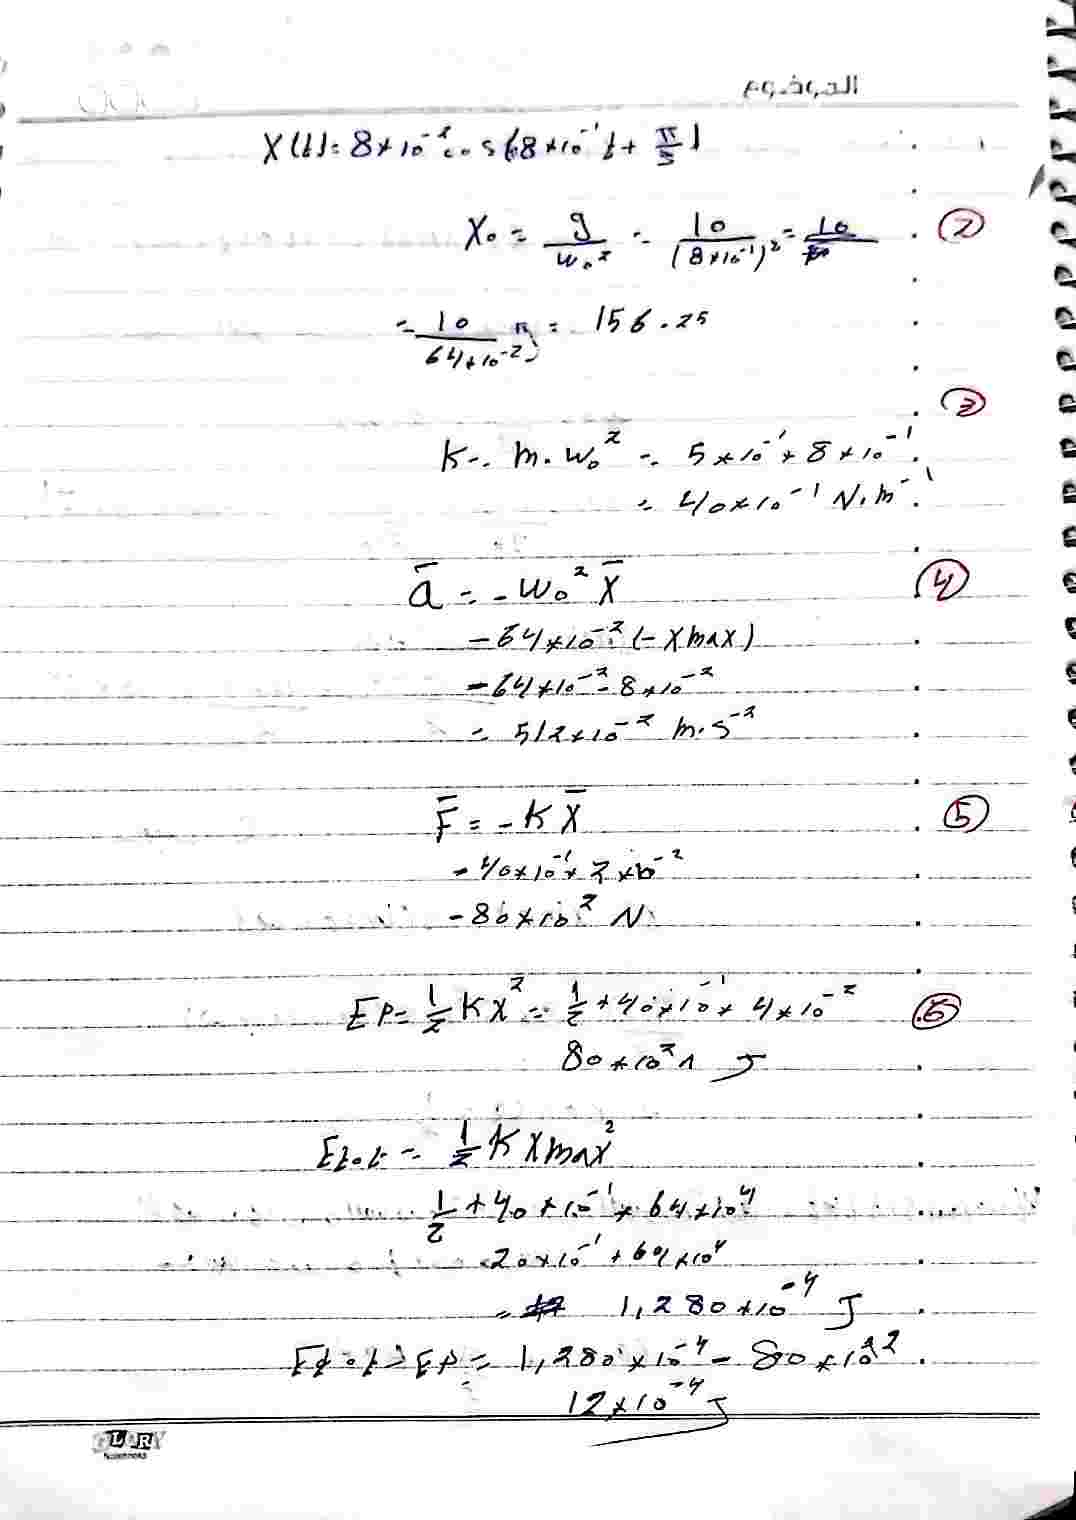 الموضوع
X(t)= 8*10⁻² cos(8*10⁻¹t + π/3)
② X₀ = g/w₀² = 10/(8*10⁻¹)² = 10
= 10/64*10⁻² = 156.25
③
K = m.w₀² = 5*10⁻¹ * 8*10⁻¹
= 40*10⁻¹ N.m⁻¹
④ a̅ = -w₀² X̅
-64*10⁻² (-Xmax)
-64*10⁻² - 8*10⁻²
= 512*10⁻² m.s⁻²
⑤ F̅ = -K X̅
-40*10⁻¹ * 2*10⁻²
-80*10² N
⑥ EP = 1/2 KX² = 1/2 * 40*10⁻¹ * 4*10⁻²
80*10² J
Etot = 1/2 K Xmax²
1/2 * 40*10⁻¹ * 64*10⁴
20*10⁻¹ * 64*10⁴
= 1,280*10⁻⁴ J
= 1,280*10⁻⁴ - 80*10
12*10⁻⁴ J
GLORY
Notebooks